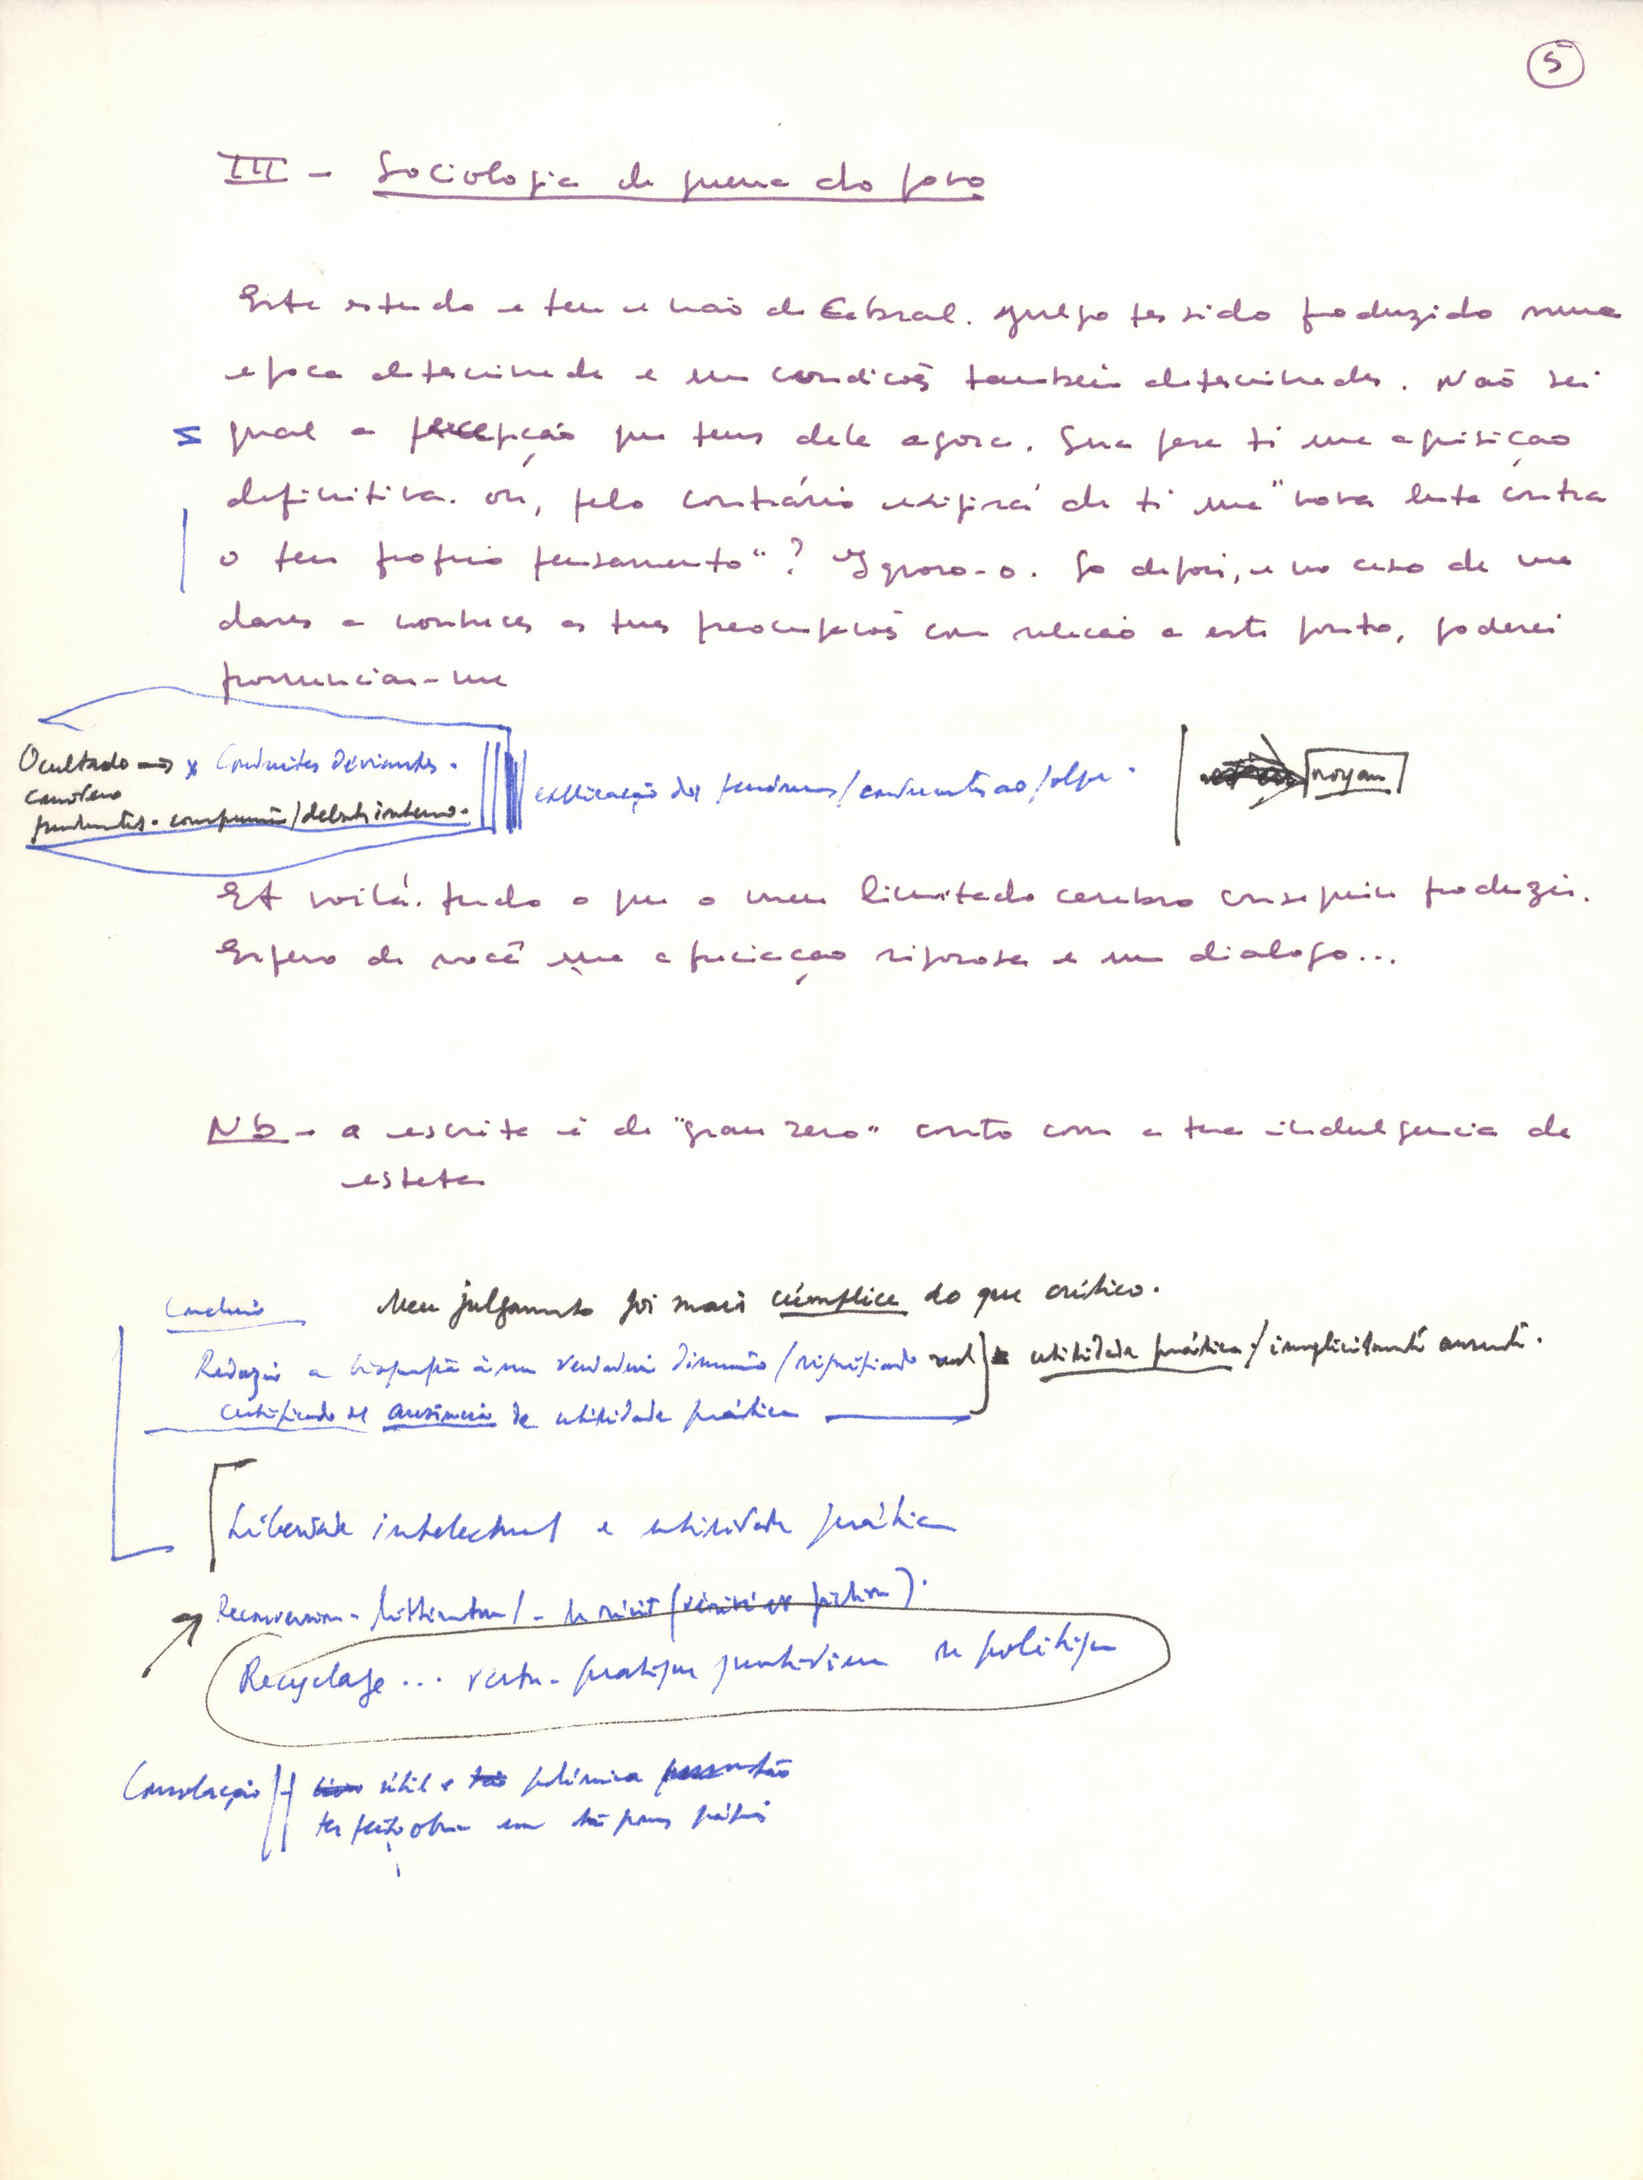 5
III - Sociologia da guerra do povo
Este estudo e teu e não de Cabral. Julgo ter sido produzido numa
epoca determinada e em condicoẽs tambem determinadas. Não sei
qual a percepição que tens dele agora. Sera para ti uma aquisiçao
definitiva. ou, pelo contrário exigirá de ti uma "nova luta contra
o teu proprio pensamento"? Ignoro-o. So depois, e no caso de me
dares a conhecer as tuas preocupacoẽs com relacão a este ponto, poderei
pronunciar-me
Ocultado → x Conduites Déviantes.
explicação dos
debate interno.
noyau
Et voilá. tudo o que o meu limitado cerebro conseguiu produzir.
Espero de você uma apreciaçao rigorosa e um dialogo...
Nb - a escrita é de "grau zero" conto com a tua indulgencia de
esteta
Conclusão Meu julgamento foi mais cúmplice do que crítico.
Reduzir a verdadeira dimensão/significado real utilidade prática / implicitamente ausente.
certificado de ausência de utilidade prática
Liberdade intelectual e utilidade prática
Reconversion - le récit (vérité et fiction).
Recyclage... vertu - pratique politique
Consolação útil e polémica
ter feito obra em tão